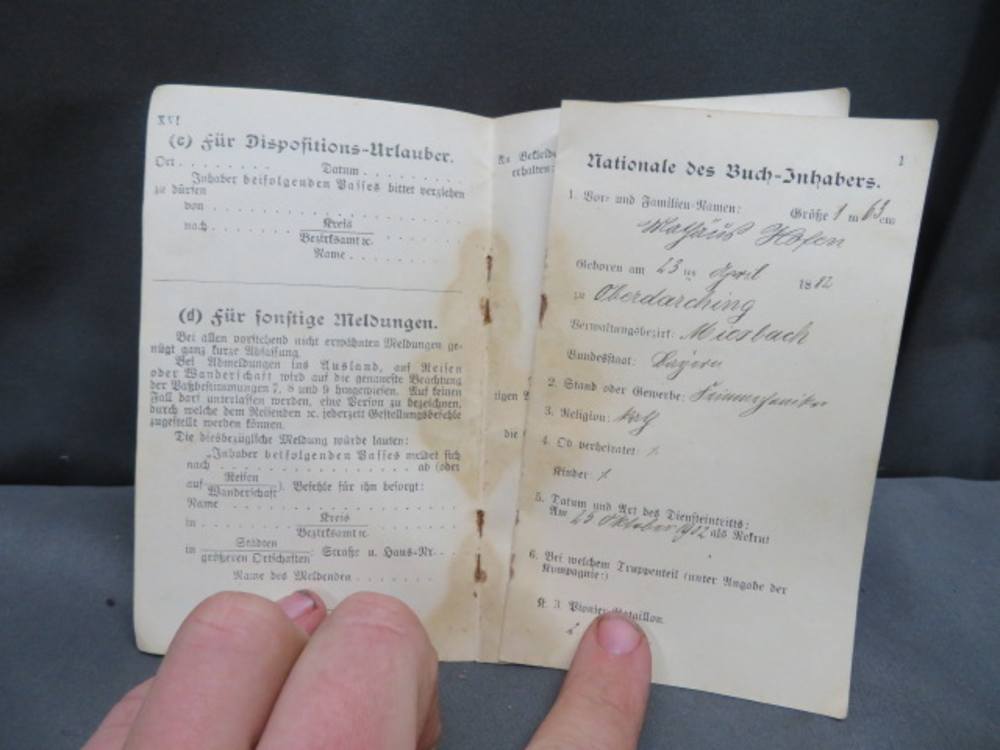 XVI
(c) Für Dispositions-Urlauber.
Ort . . . . . . . . Datum . . . . . . . .
Inhaber beifolgenden Passes bittet verziehen
zu dürfen
von . . . . . . . .
nach . . . . . . . . Kreis
Bezirksamt ꝛc. . . . . . . .
Name . . . . . . . .
(d) Für sonstige Meldungen.
Bei allen vorstehend nicht erwähnten Meldungen ge-
nügt ganz kurze Abfassung.
Bei Abmeldungen ins Ausland, auf Reisen
oder Wanderschaft wird auf die genaueste Beachtung
der Paßbestimmungen 7, 8 und 9 hingewiesen. Auf keinen
Fall darf unterlassen werden, eine Person zu bezeichnen,
durch welche dem Reisenden ꝛc. jederzeit Gestellungsbefehle
zugestellt werden können.
Die diesbezügliche Meldung würde lauten:
„Inhaber beifolgenden Passes meldet sich
nach . . . . . . . . ab (oder
auf Reisen
Wanderschaft). Befehle für ihn besorgt:
Name . . . . . . . .
in . . . . . . . . Kreis
Bezirksamt ꝛc.
in Städten
größeren Ortschaften: Straße u. Haus-Nr. . .
Name des Meldenden . . . . . . . .
An Bekleid
erhalten:
tigen
die
1
Nationale des Buch-Inhabers.
1. Vor- und Familien-Namen: Größe 1 m 63 cm
Mathäus Hofen
Geboren am 23 ten April 1882
zu Oberdarching
Verwaltungsbezirk: Miesbach
Bundesstaat: Bayern
2. Stand oder Gewerbe: Feinmechaniker
3. Religion: kath
4. Ob verheiratet: /
Kinder: /
5. Datum und Art des Diensteintritts:
Am 23 Oktober 1902 als Rekrut
6. Bei welchem Truppenteil (unter Angabe der
Kompagnie:)
K. 3. Pionier-Bataillon
2